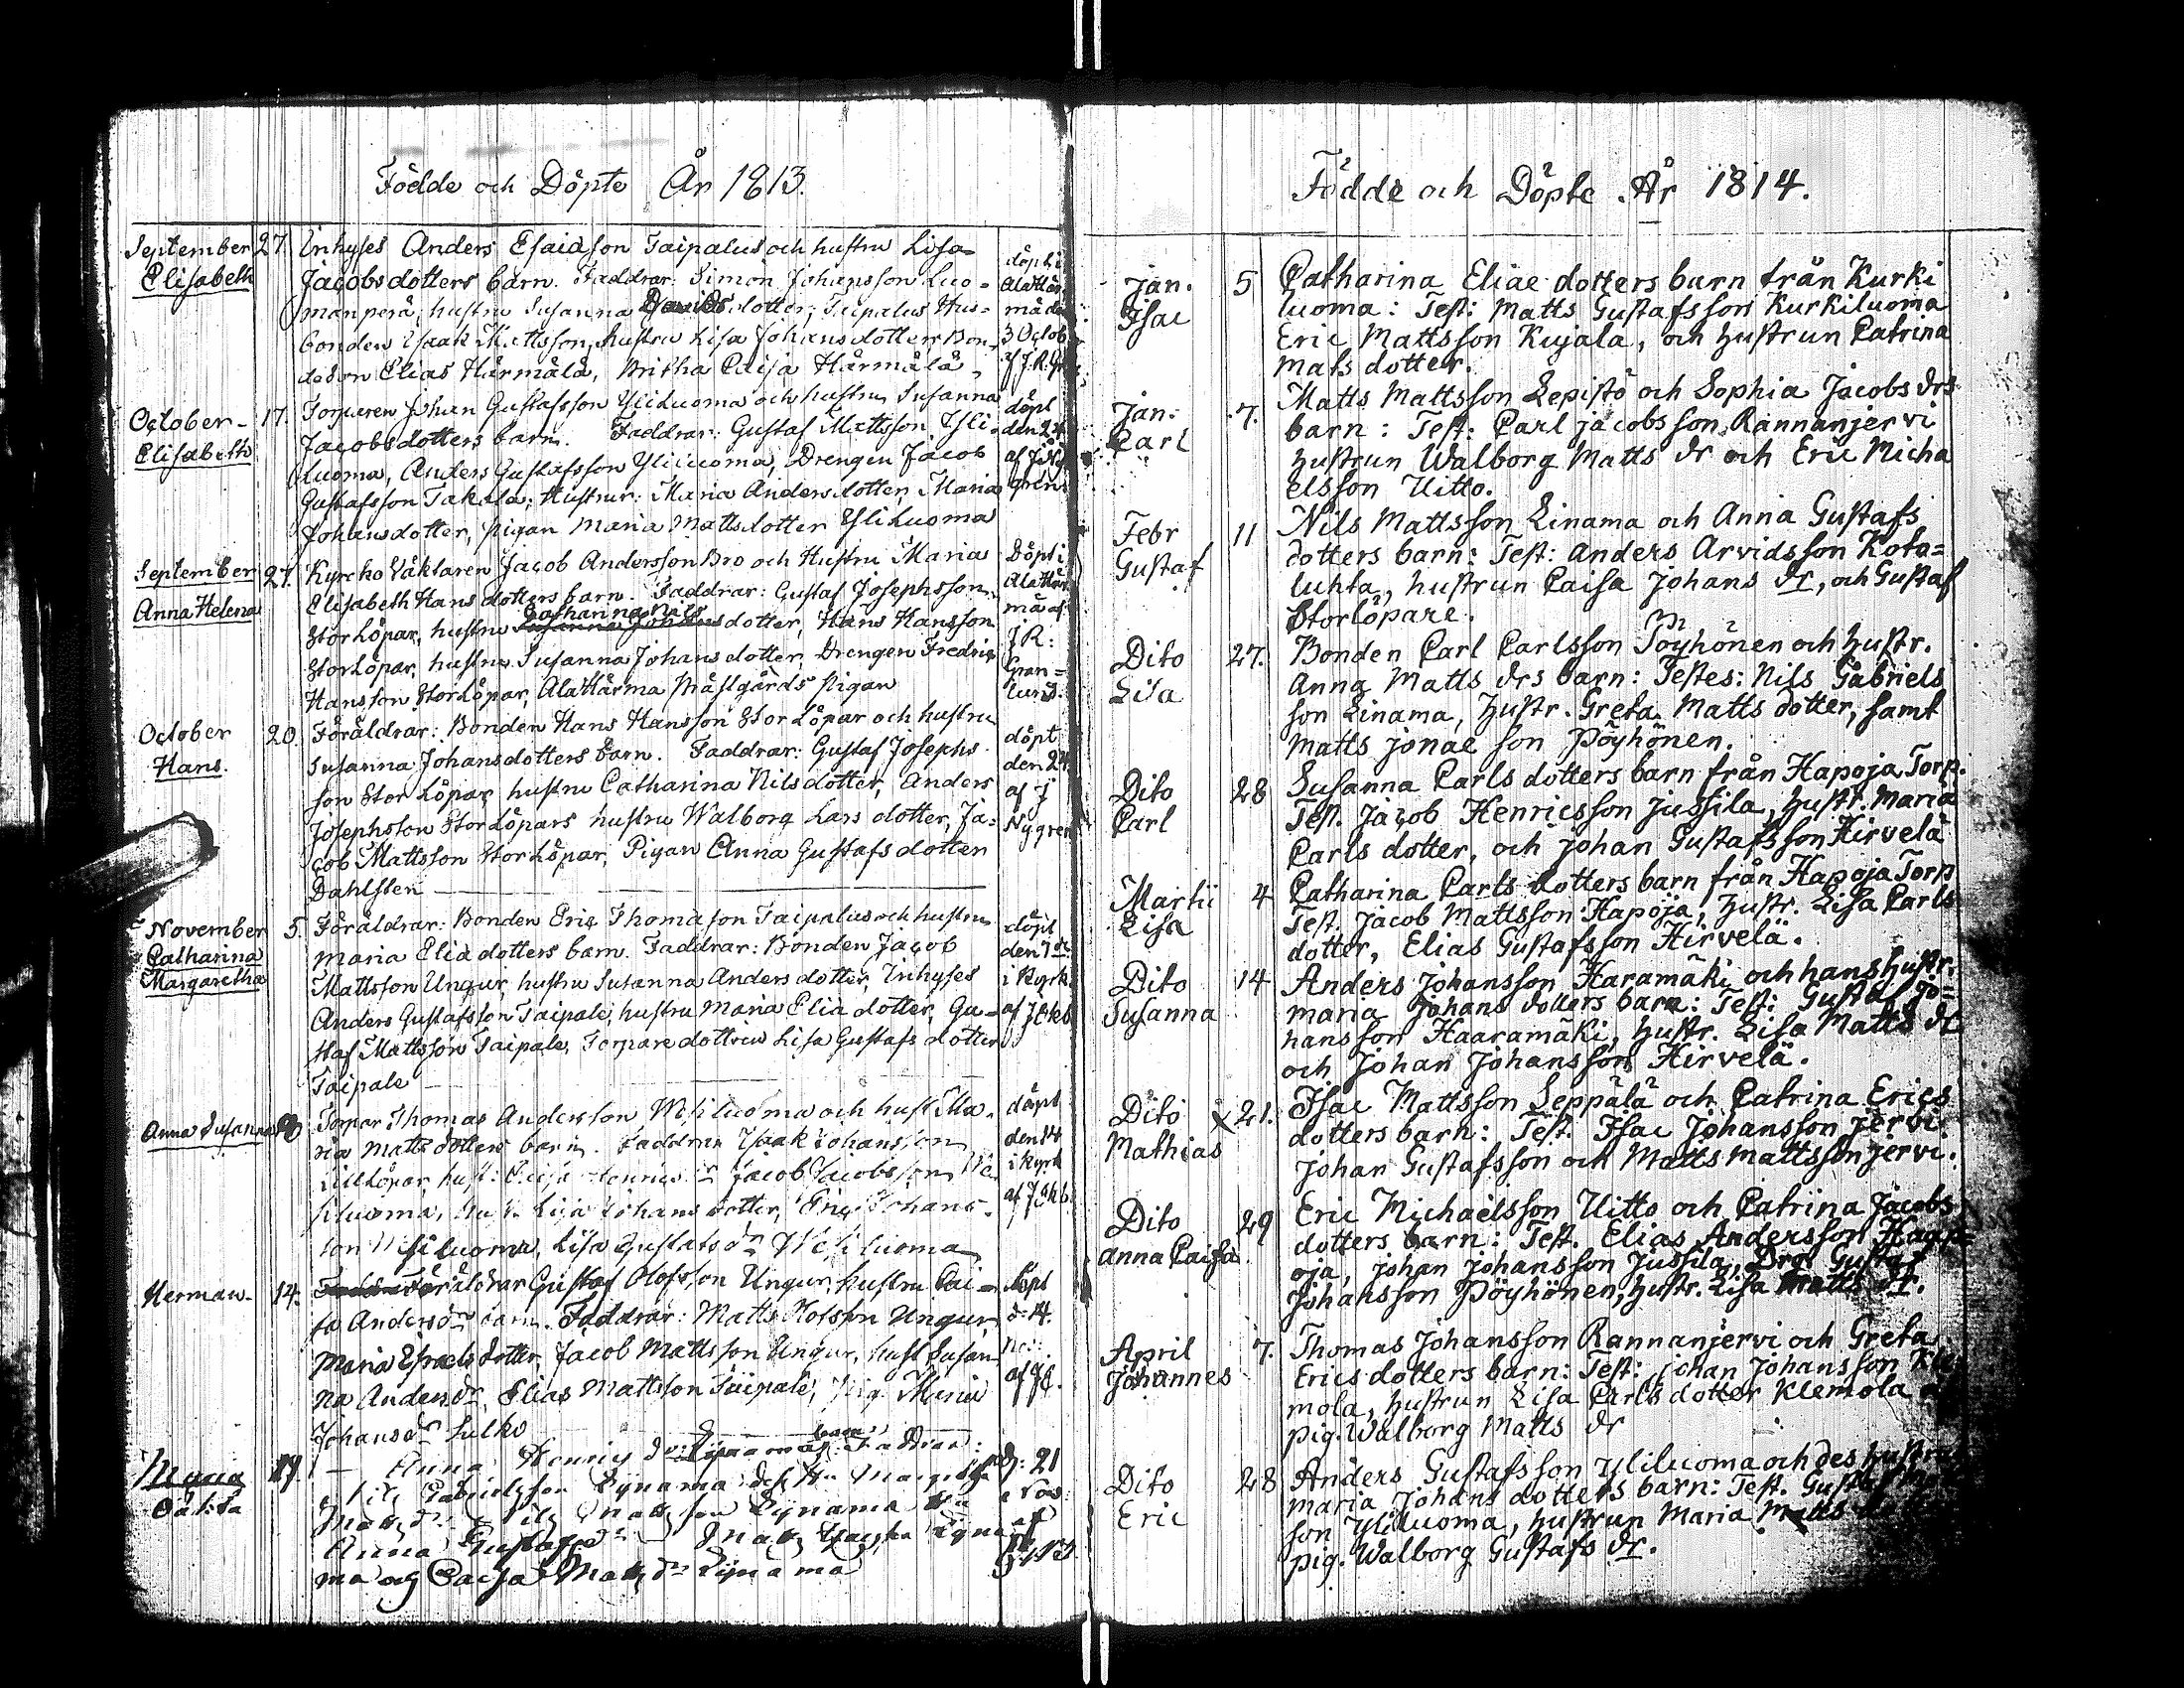 Födde och Döpte År 1813.
September 27. Inhyses Anders Esaiasson Taipalus och hustru Lisa
Elisabeth Jacobsdotters barn. Faddrar: Simon Johansson Luo- döpt i
manperä, hustru Susanna Davidsdotter, Taipalus Hus-
bonden Isaak Mattsson, hustru Lisa Johansdotter Bon- 3 Octob.
deson Elias Härmälä, Britha Caisa Härmälä
October 17. Torparen Johan Gustafsson Yliluoma och hustru Susanna döpt
Elisabeth Jacobsdotters barn. Faddrar: Gustaf Mattsson Yli-
luoma, Anders Gustafsson Yliluoma, Drengen Jacob
Gustafsson Takala; Hustrur: Maria Andersdotter, Maria
Johansdotter, pigan Maria Mattsdotter Yliluoma
September 27. Kyrkowäktaren Jacob Andersson Bro och Hustru Maria Döpt i
Anna Helena Elisabeth Hansdotters barn. Faddrar: Gustaf Josephsson Alahär
Catharina Nils
StorLöpar, hustru Susanna Johansdotter, Hans Hansson mä af
StorLöpar, hustru Susanna Johansdotter, Drengen Fredric J R:
Hansson StorLöpar, Alahärma Prästgårds Pigan Gran=
lund.
October 20. Föräldrar: Bonden Hans Hansson StorLöpar och hustru
Hans. Susanna Johansdotters barn. Faddrar: Gustaf Josephs- döpt
son StorLöpar hustru Catharina Nilsdotter, Anders den 24.
Josephsson StorLöpars hustru Walborg Lars dotter, Ja- af J
cob Mattsson StorLöpar, Pigan Anna Gustafsdotter Nygren
Dahlsten
November 5. Föräldrar: Bonden Eric Thomasson Taipalus och hustru döpt
Catharina Maria Elia dotters barn. Faddrar: Bonden Jacob den 7de
Margaretha Mattsson Ungur, hustru Susanna Anders dotter, Inhyses i kyrk.
Anders Gustafsson Taipale, hustru Maria Elia dotter, Gu-
staf Mattsson Taipale, Torparedottren Lisa Gustafs dotter
Taipale
Anna Susanna Torpar Thomas Andersson Wesiluoma och hust. Ma- döpt
ria Matts dotters barn. Faddrar Isaak Johansson den 14
LillLöpar, hust: Caisa Jacob Jacobsson We- i kyrk
siluoma, Lisa Johans dotter, Eric Johans-
son Wesiluoma, Lisa Gustafs dr Wesiluoma
Herman 14. Föräldrar Gustaf Olofsson Ungur, hustru Cai- döpt
sa Anders dr barn. Faddrar: Matts Olofsson Ungur d. 14.
Maria Esraels dotter, Jacob Mattsson Ungur, hust Susan-
na Anders dr, Elias Mattsson Taipale, Pig. Maria
Johans dr Sulko
Maria Anna Henrics dr Lynamas barn. Faddrar: d: 21
Caisa Nils Gabrielsson Lynama och Margeta
Matts dr Nils Mattsson Lynama
Anna Gustafs dr Matts Lyna-
ma och Caisa Matts dr Lynama
Födde och Döpte År 1814.
Jan. 5 Catharina Eliae dotters barn från Kurki
Isac luoma: Test: Matts Gustafsson Kurkiluoma
Eric Mattsson Kujala, och hustrun Catrina
Mats dotter.
Jan. 7. Matts Mattsson Lepistö och Sophia Jacobs drs
Carl barn: Test: Carl jacobsson Rannanjervi
hustrun Walborg Matts dr och Eric Micha
elsson Uitto.
Febr 11 Nils Mattsson Linama och Anna Gustafs
Gustaf dotters barn: Test: Anders Arvidsson Kota=
luhta, hustrun Caisa Johans dr, och Gustaf
Storlöpare.
Dito 27. Bonden Carl Carlsson Pöyhönen och hustr.
Lisa Anna Matts drs barn: Testes: Nils Gabriels
son Linama, Hustr. Greta Matts dotter, samt
Matts jonae son Pöyhönen.
Dito 28 Susanna Carls dotters barn från Hapoja Torp.
Carl Test. Jacob Henricsson Jussila, hustr. Maria
Carls dotter, och Johan Gustafsson Hirvelä
Martii 4 Catharina Carls dotters barn från Hapoja Torp
Lisa Test. Jacob Mattsson Hapoja, hustr. Lisa Carls
dotter, Elias Gustafsson Hirvelä.
Dito 14 Anders Johansson Haramäki och hans hustr.
Susanna Maria Johans dotters barn: Test: Gustaf Jo=
hansson Haaramäki, hustr. Lisa Matts dr
och Johan Johansson Hirvelä.
Dito x 21. Isac Mattsson Seppälä och Catrina Erics
Mathias dotters barn: Test. Isac Johansson jervi
Johan Gustafsson och Matts Mattsson jervi.
Dito 29 Eric Michaelsson Uitto och Catrina Jacobs
Anna Caisa dotters barn: Test. Elias Andersson Haap=
oja, Johan Johansson Jussila, Drg. Gustaf
Johansson Pöyhönen, hustr. Lisa Matts dr.
April 7. Thomas Johansson Rannanjervi och Greta
Johannes Erics dotters barn: Test: Johan Johansson Kle
mola, hustrun Lisa Carls dotter Klemola
pig. Walborg Matts dr
Dito 28 Anders Gustafsson Yliluoma och des hustrus
Eric Maria Johans dotters barn: Test. Gustaf
son Yliluoma, hustrun Maria Matts
pig. Walborg Gustafs dr.